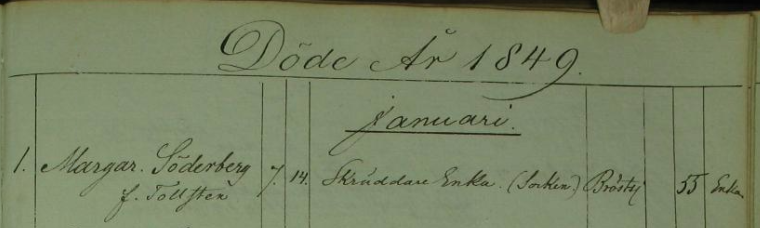 Döde År 1849.
januari.
1. Margar. Söderberg 7. 14. Skräddare Enka. (Socken) 55 Enka
f. Tollsten